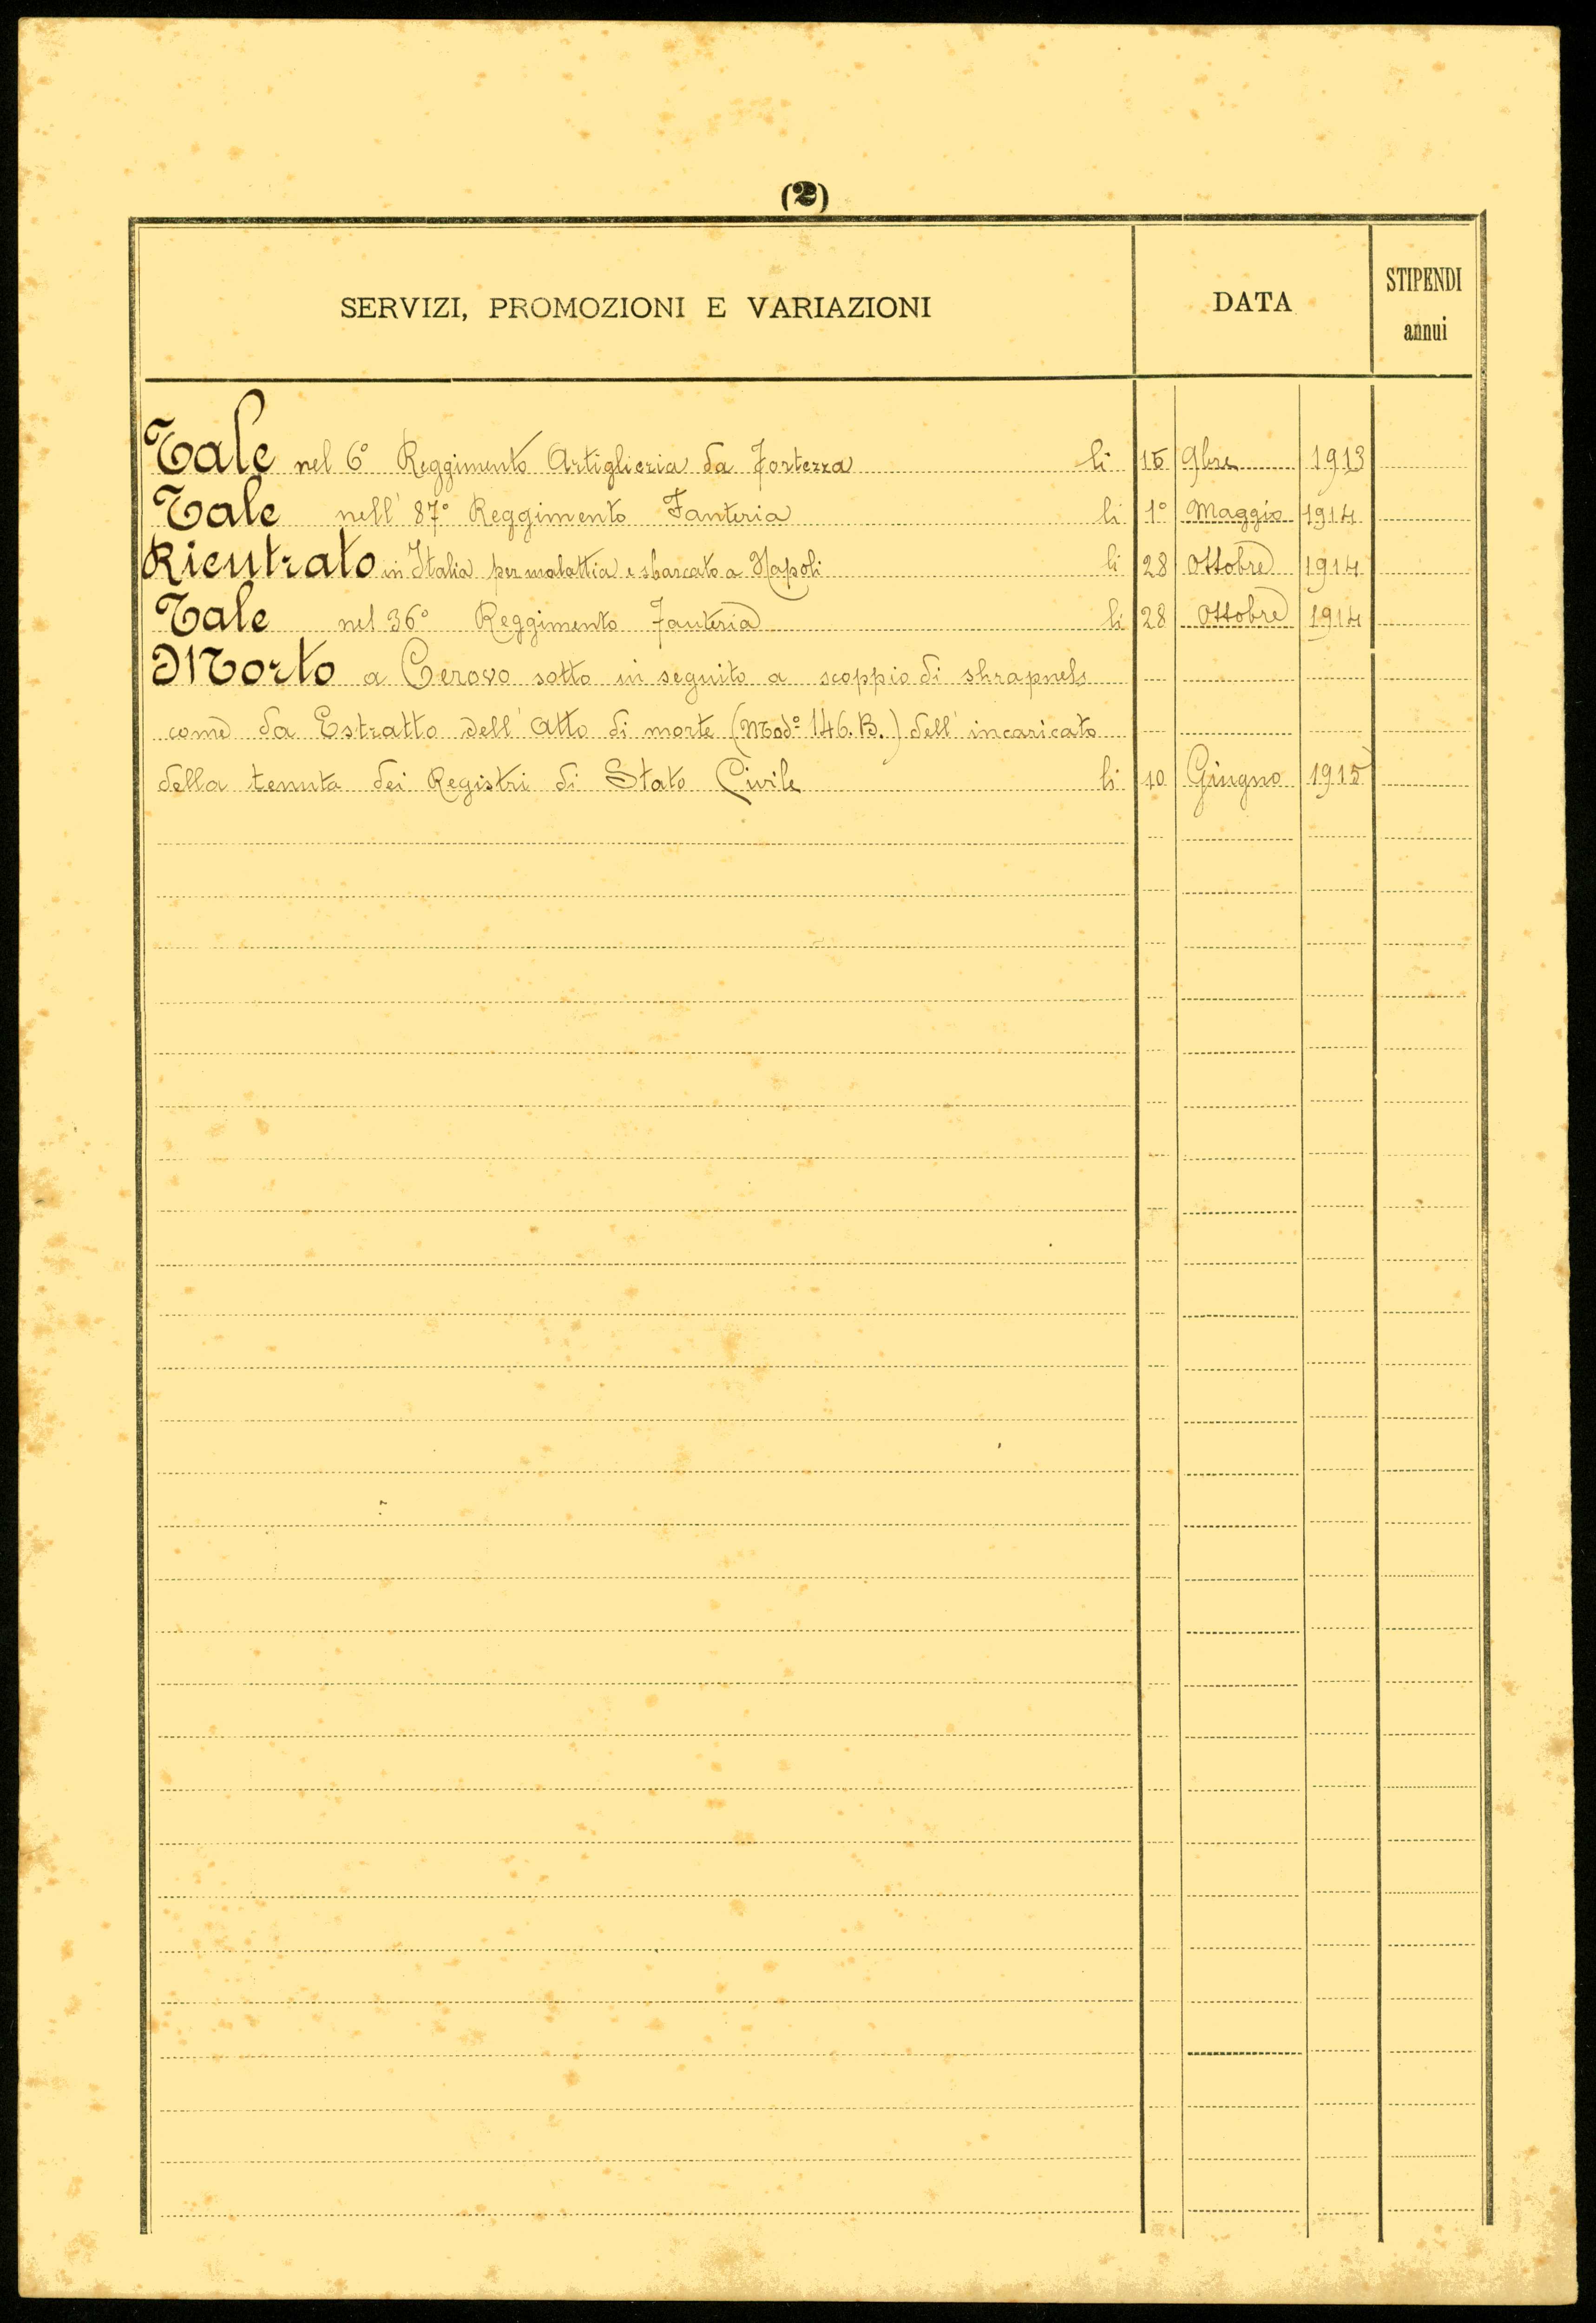 (2)
SERVIZI, PROMOZIONI E VARIAZIONI DATA STIPENDI annui
Tale nel 6° Reggimento Artiglieria da Fortezza li 15 9bre 1913
Tale nell' 87° Reggimento Fanteria li 1° Maggio 1914
Rientrato in Italia per malattia e sbarcato a Napoli li 28 Ottobre 1914
Tale nel 36° Reggimento Fanteria li 28 Ottobre 1914
Morto a Cerovo sotto in seguito a scoppio di shrapnels
come da Estratto dell' Atto di morte (Mod° 146. B.) dell' incaricato
della tenuta dei Registri di Stato Civile li 10 Giugno 1915